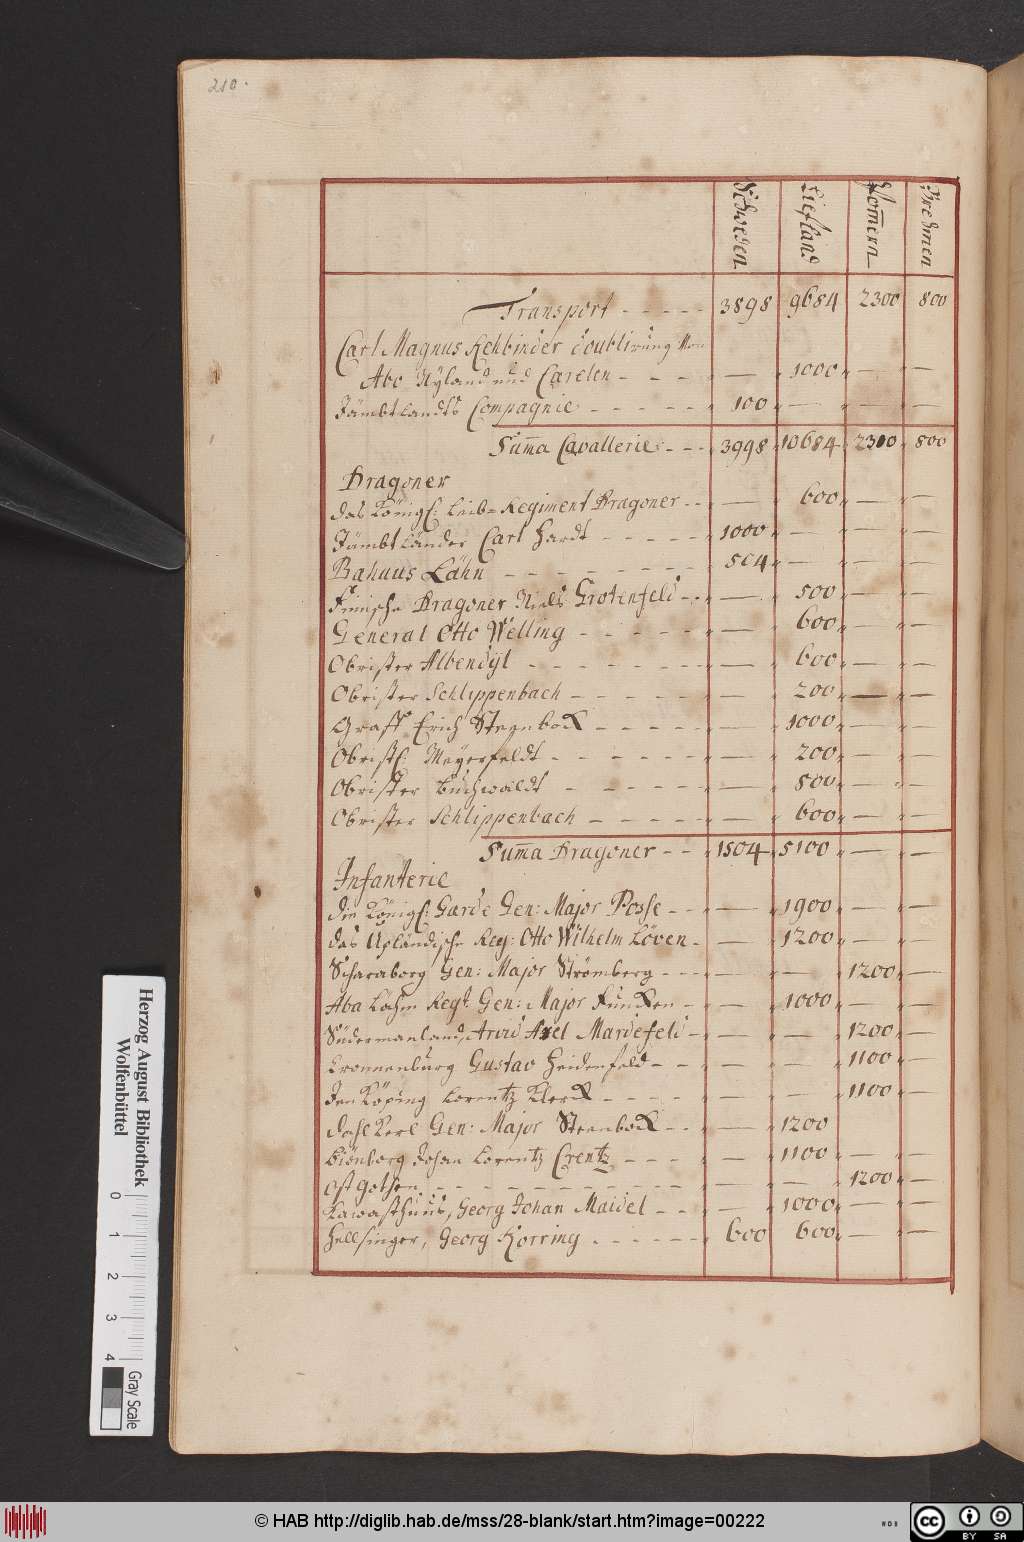 210.
Schweden Liefland Pom̄ern Bredmen
Transport - - - - - 3898 9684 2300 800
Carl Magnus Rehbinder doublirung von
Abo Nyland und Carelen - - - — 1000 — —
Jämbtlandts Compagnie - - - - - 100 — — —
Sum̄a Cavallerie - - - 3998 10684 2300 800
Dragoner
das Königl: Leib=Regiment Dragoner - - — 600 — —
Jämbtländer Carl Hardt - - - - - 1000 — — —
Bahuus Lähn - - - - - - - - 504 — — —
Finnische Dragoner Niels Grotenfeld - - — 500 — —
General Otto Welling - - - - - — 600 — —
Obrister Albendÿl - - - - - - — 600 — —
Obrister Schlippenbach - - - - - — 200 — —
Graff Erich Steenbock - - - - - — 1000 — —
Obristl: Meyerfeldt - - - - - - — 200 — —
Obrister Buchwaldt - - - - - — 800 — —
Obrister Schlippenbach - - - - - — 600 — —
Sum̄a Dragoner - - - 1504 5100 — —
Infanterie
die Königl: Garde Gen: Major Posse - - — 1900 — —
das Upländische Reg: Otto Wilhelm Löven - — 1200 — —
Scharaborg Gen: Major Strömberg - - - — — 1200 —
Aba Lähn Regt. Gen: Major Funcken - — 1000 — —
Südermanland, Arvid Axel Mardefeld - — — 1200 —
Cronnenburg Gustav Heidenfeld - - - — — 1100 —
Jenköping Lorentz Klerck - - - - - — — 1100 —
dahlkerl Gen: Major Steenbock - - — 1200
Biönborg Johan Lorentz Crentz - - - — 1100 — —
Ost Gothen - - - - - - - - — — 1200 —
Tawasthuus, Georg Johan Maidel - - — 1000 — —
Hellsinger, Georg Korring - - - - - 600 600 — —
Herzog August Bibliothek
Wolfenbüttel
0 1 2 3 4
Gray Scale
© HAB http://diglib.hab.de/mss/28-blank/start.htm?image=00222
WDB
CC BY SA